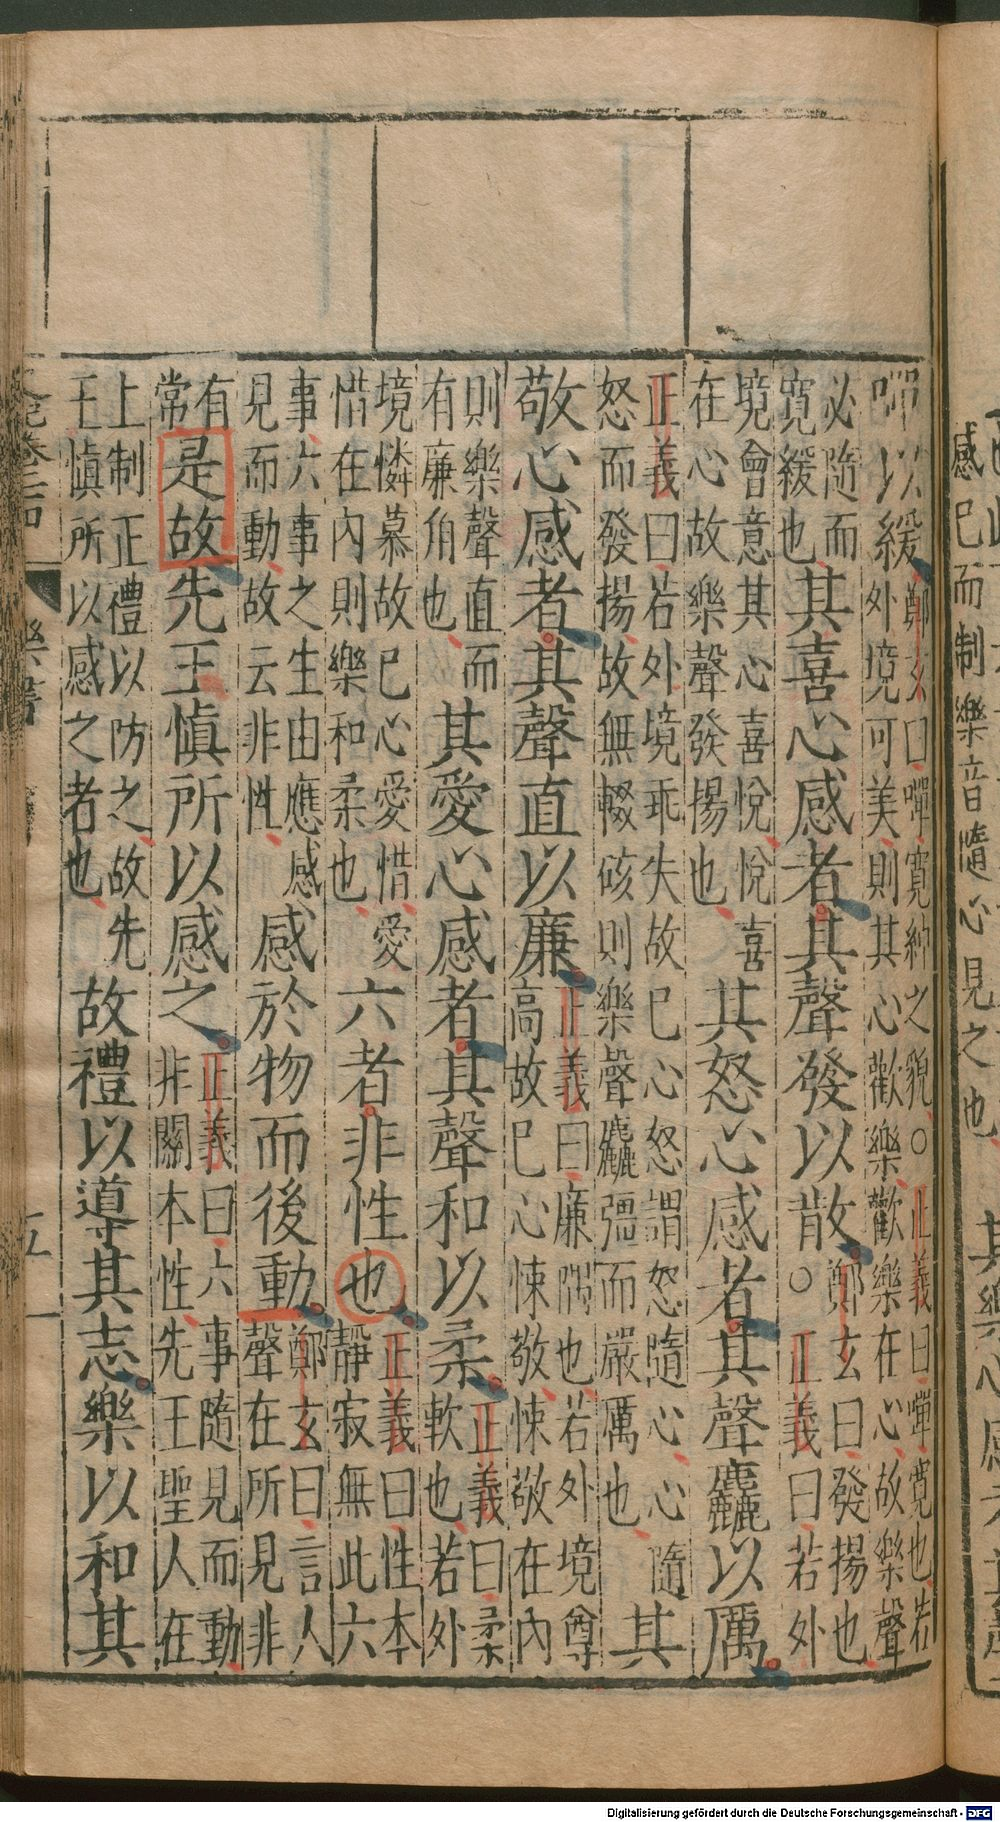 嘽以緩鄭玄曰嘽寬綽之貌○正義曰嘽寬也若外境可美則其心歡樂歡樂在心故樂聲
必隨而寬緩也其喜心感者其聲發以散鄭玄曰發揚也○正義曰若外
境會意其心喜悅悅喜在心故樂聲發揚也其怒心感者其聲麤以厲
正義曰若外境乖失故已心怒謂怒隨心心隨怒而發揚故無輟硋則樂聲麤彊而嚴厲也其
敬心感者其聲直以廉正義曰廉隅也若外境尊高故已心悚敬悚敬在內
則樂聲直而有廉角也其愛心感者其聲和以柔正義曰柔軟也若外
境憐慕故已心愛惜愛惜在內則樂和柔也六者非性也正義曰性本靜寂無此六
事六事之生由應感見而動故云非性感於物而後動鄭玄曰言人聲在所見非
有常是故先王慎所以感之正義曰六事隨見而動非關本性先王聖人在
上制正禮以防之故先王慎所以感之者也故禮以導其志樂以和其
樂書
五
感已而制樂音隨心見之也其樂心感
Digitalisierung gefördert durch die Deutsche Forschungsgemeinschaft - DFG